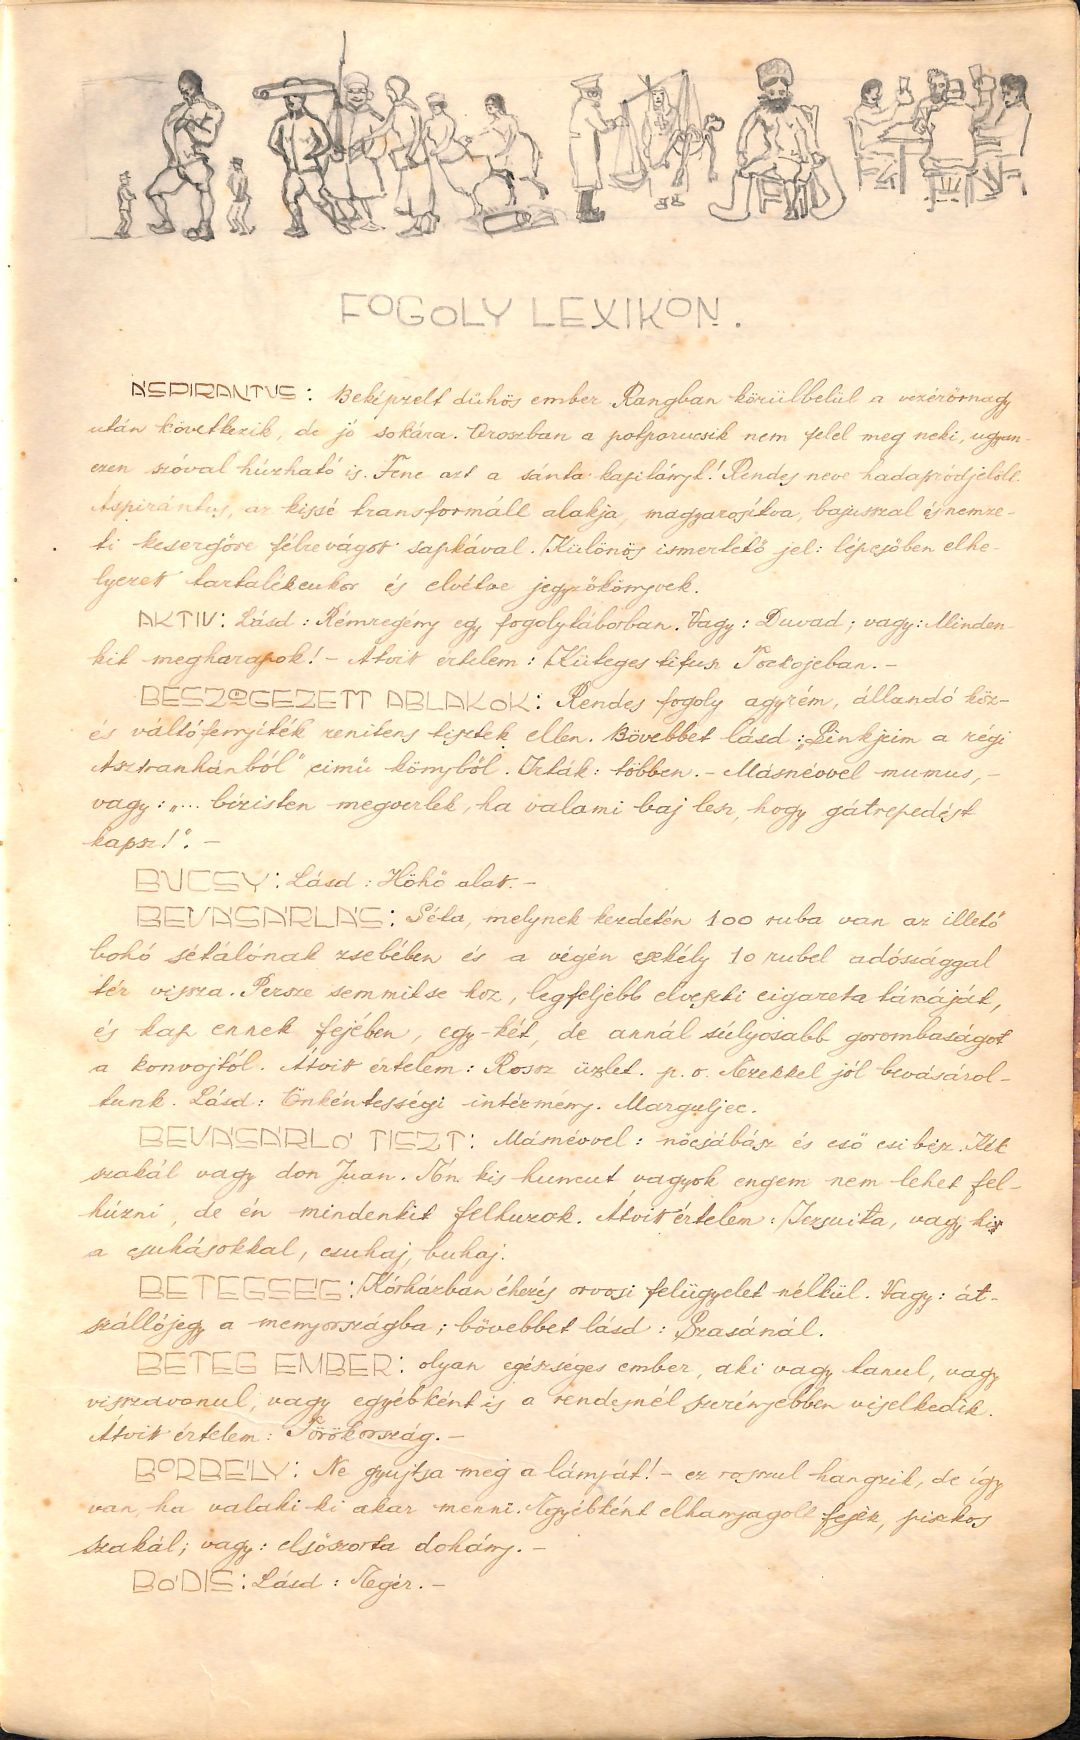 FOGOLY LEXIKON.
ASPIRANTUS: Beképzelt dühös ember. Rangban körülbelül a vezérőrnagy
után következik, de jó sokára. Oroszban a potporucsik nem felel meg neki, ugyan-
ezen szóval húzható is. Fene azt a sánta kapitányt! Rendes neve hadapródjelölt.
Áspirántus, az kissé transformált alakja, magyarosítva, bajusszal és nemze-
ti kesergőre félrevágott sapkával. Különös ismertető jel: lépcsőben elhe-
lyezett tartalékcukor és elvétve jegyzőkönyvek.
AKTIV: Lásd: Rémregény egy fogolytáborban. Vagy: Duvad; vagy: Minden-
kit megharapok! - Átvitt értelem: Kiüteges tifusz Tockojeban. -
BESZÖGEZETT ABLAKOK: Rendes fogoly agyrém, állandó köz-
és váltófenyíték renitens tisztek ellen. Bövebbet lásd: „Pinkjeim a régi
Asztranhánból" cimü könyből. Irták: többen. - Másnévvel mumus, -
vagy: „... bézisten megverlek, ha valami baj lesz, hogy gátrepedést
kapsz!". -
BUCSY: Lásd: Höhö alatt. -
BEVÁSÁRLÁS: Séta, melynek kezdetén 100 ruba van az illető
bohó sétálónak zsebében és a végén csekély 10 rubel adóssággal
tér vissza. Persze semmitse hoz, legfeljebb elveszti cigareta tárcáját,
és kap ennek fejében, egy-két, de annál súlyosabb gorombaságot
a konvojtól. Átvitt értelem: Rossz üzlet. p.o. Ezekkel jól bevásárol-
tunk. Lásd: Önkéntességi intézmény. Marguljec.
BEVÁSÁRLÓ TISZT: Másnévvel: nőcsábász és eső csibész. Kék
szakál vagy don Juan. Én kis huncut vagyok engem nem lehet fel-
húzni, de én mindenkit felhuzok. Átvitt értelem: Jezsuita, vagy ki
a csuhásokkal, csuhaj, buhaj.
BETEGSÉG: Kórházban éhezés orvosi felügyelet nélkül. Vagy: át-
szállójegy a menyországba; bövebbet lásd: Szasánál.
BETEG EMBER: olyan egészséges ember, aki vagy tanul, vagy
visszavonul, vagy egyébként is a rendesnél szerényebben viselkedik.
Átvitt értelem: Törökország. -
BORBÉLY: Ne gyujtsa meg a lámpát! - ez rosszul hangzik, de így
van, ha valaki ki akar menni. Egyébként elhanyagolt fejek, piszkos
szakál; vagy: elsöszorta dohány. -
BÓDIS: Lásd: Negér. -